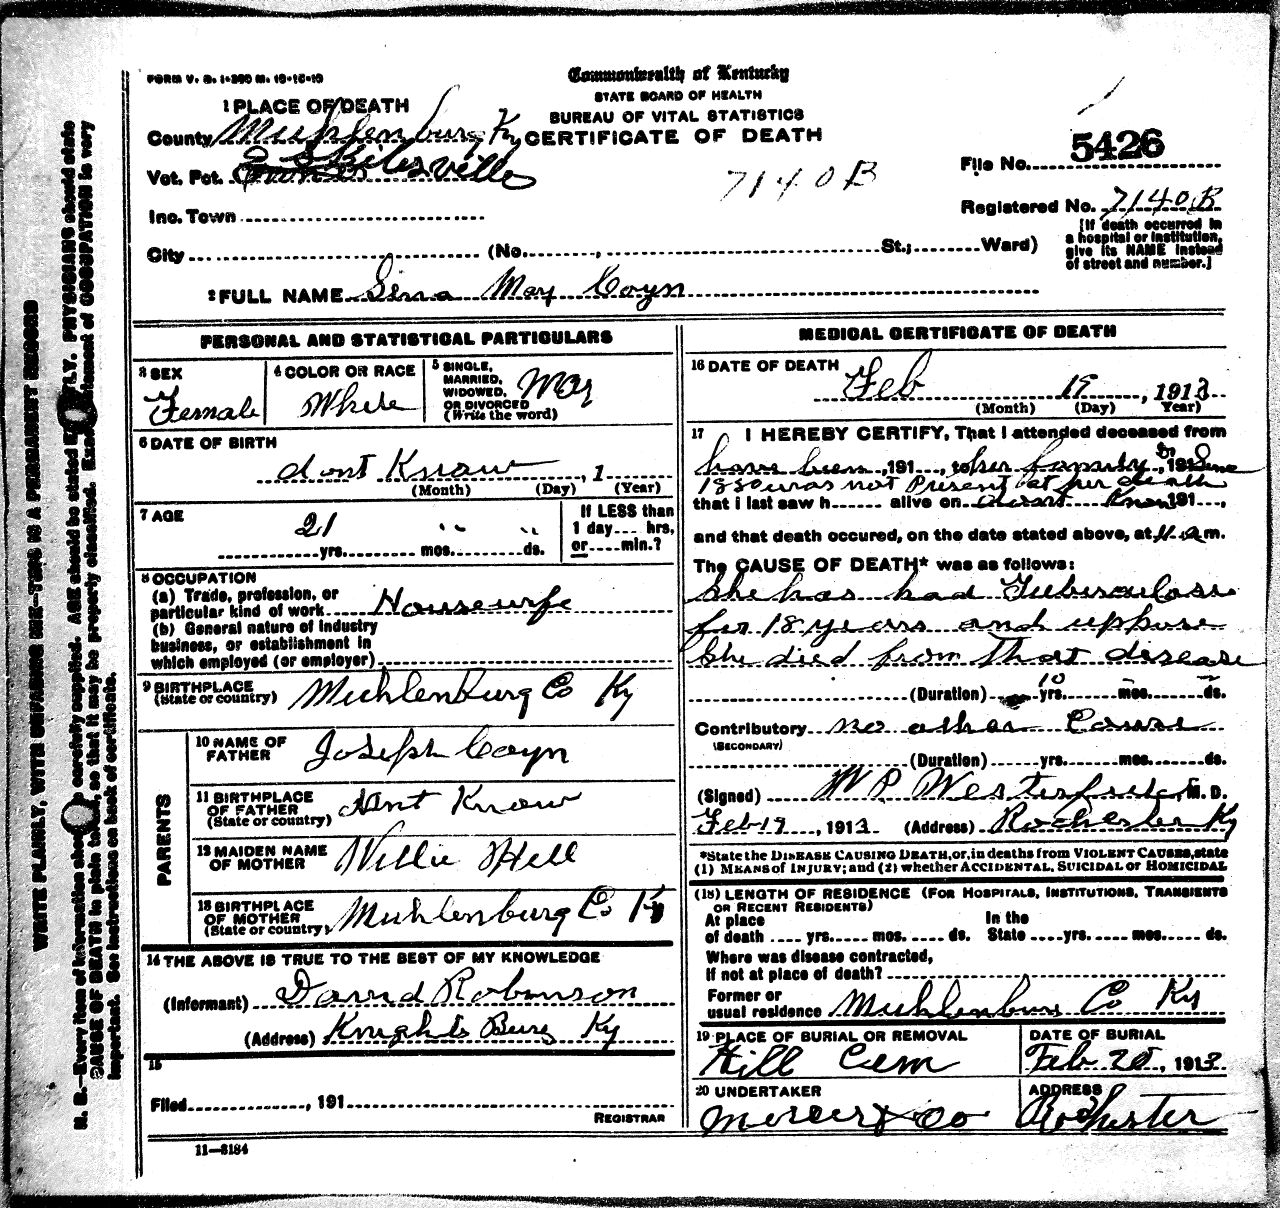 FORM V. S. 1-350 M. 10-16-10
Commonwealth of Kentucky
STATE BOARD OF HEALTH
BUREAU OF VITAL STATISTICS
CERTIFICATE OF DEATH
1 PLACE OF DEATH
County Muhlenburg Ky
Vot. Pct. Skilesville
Inc. Town
City (No. , St.; Ward)
7140B
File No. 5426
Registered No. 7140B
[If death occurred in
a hospital or institution,
give its NAME instead
of street and number.]
2 FULL NAME Sina May Coyn
PERSONAL AND STATISTICAL PARTICULARS
3 SEX
Female
4 COLOR OR RACE
White
5 SINGLE,
MARRIED,
WIDOWED,
OR DIVORCED
(Write the word)
6 DATE OF BIRTH
dont Know , 1
(Month) (Day) (Year)
7 AGE
21 " "
yrs. mos. ds.
If LESS than
1 day.... hrs,
or.....min.?
8 OCCUPATION
(a) Trade, profession, or
particular kind of work Housewife
(b) General nature of industry
business, or establishment in
which employed (or employer)
9 BIRTHPLACE
(State or country) Muhlenburg Co Ky
PARENTS
10 NAME OF
FATHER Joseph Coyn
11 BIRTHPLACE
OF FATHER
(State or country) dont Know
12 MAIDEN NAME
OF MOTHER Willie Hill
13 BIRTHPLACE
OF MOTHER
(State or country) Muhlenburg Co Ky
14 THE ABOVE IS TRUE TO THE BEST OF MY KNOWLEDGE
(Informant) David Robinson
(Address) Knights Burg Ky
15
Filed , 191
REGISTRAR
11—3184
MEDICAL CERTIFICATE OF DEATH
16 DATE OF DEATH
Feb 19 , 1913
(Month) (Day) Year)
17 I HEREBY CERTIFY, That I attended deceased from
have been ,191 , to her family Dr , 191 Since
1880 was not Present at her death
that I last saw h alive on dont Know 191 ,
and that death occured, on the date stated above, at 11 a m.
The CAUSE OF DEATH* was as follows:
She has had Tuberculosis
for 18 years and uppose
She died from that disease
(Duration) 10 yrs. mos. ds.
Contributory no other Cause
(SECONDARY)
(Duration) yrs. mos. ds.
(Signed) W P Westerfield, M. D.
Feb 19 , 1913 (Address) Rochester Ky
*State the DISEASE CAUSING DEATH, or, in deaths from VIOLENT CAUSES, state
(1) MEANS OF INJURY; and (2) whether ACCIDENTAL, SUICIDAL or HOMICIDAL
(18) LENGTH OF RESIDENCE (FOR HOSPITALS, INSTITUTIONS, TRANSIENTS
OR RECENT RESIDENTS)
At place In the
of death .... yrs. mos. ds. State yrs. mos. ds.
Where was disease contracted,
if not at place of death?
Former or
usual residence Muhlenburg Co Ky
19 PLACE OF BURIAL OR REMOVAL
Hill Cem
DATE OF BURIAL
Feb 20 , 1913
20 UNDERTAKER
Mercer & Co
ADDRESS
Rochester
WRITE PLAINLY, WITH UNFADING INK—THIS IS A PERMANENT RECORD
N. B.—Every item of information should be carefully supplied. AGE should be stated EXACTLY. PHYSICIANS should state
CAUSE OF DEATH in plain terms, so that it may be properly classified. Exact statement of OCCUPATION is very
important. See instructions on back of certificate.